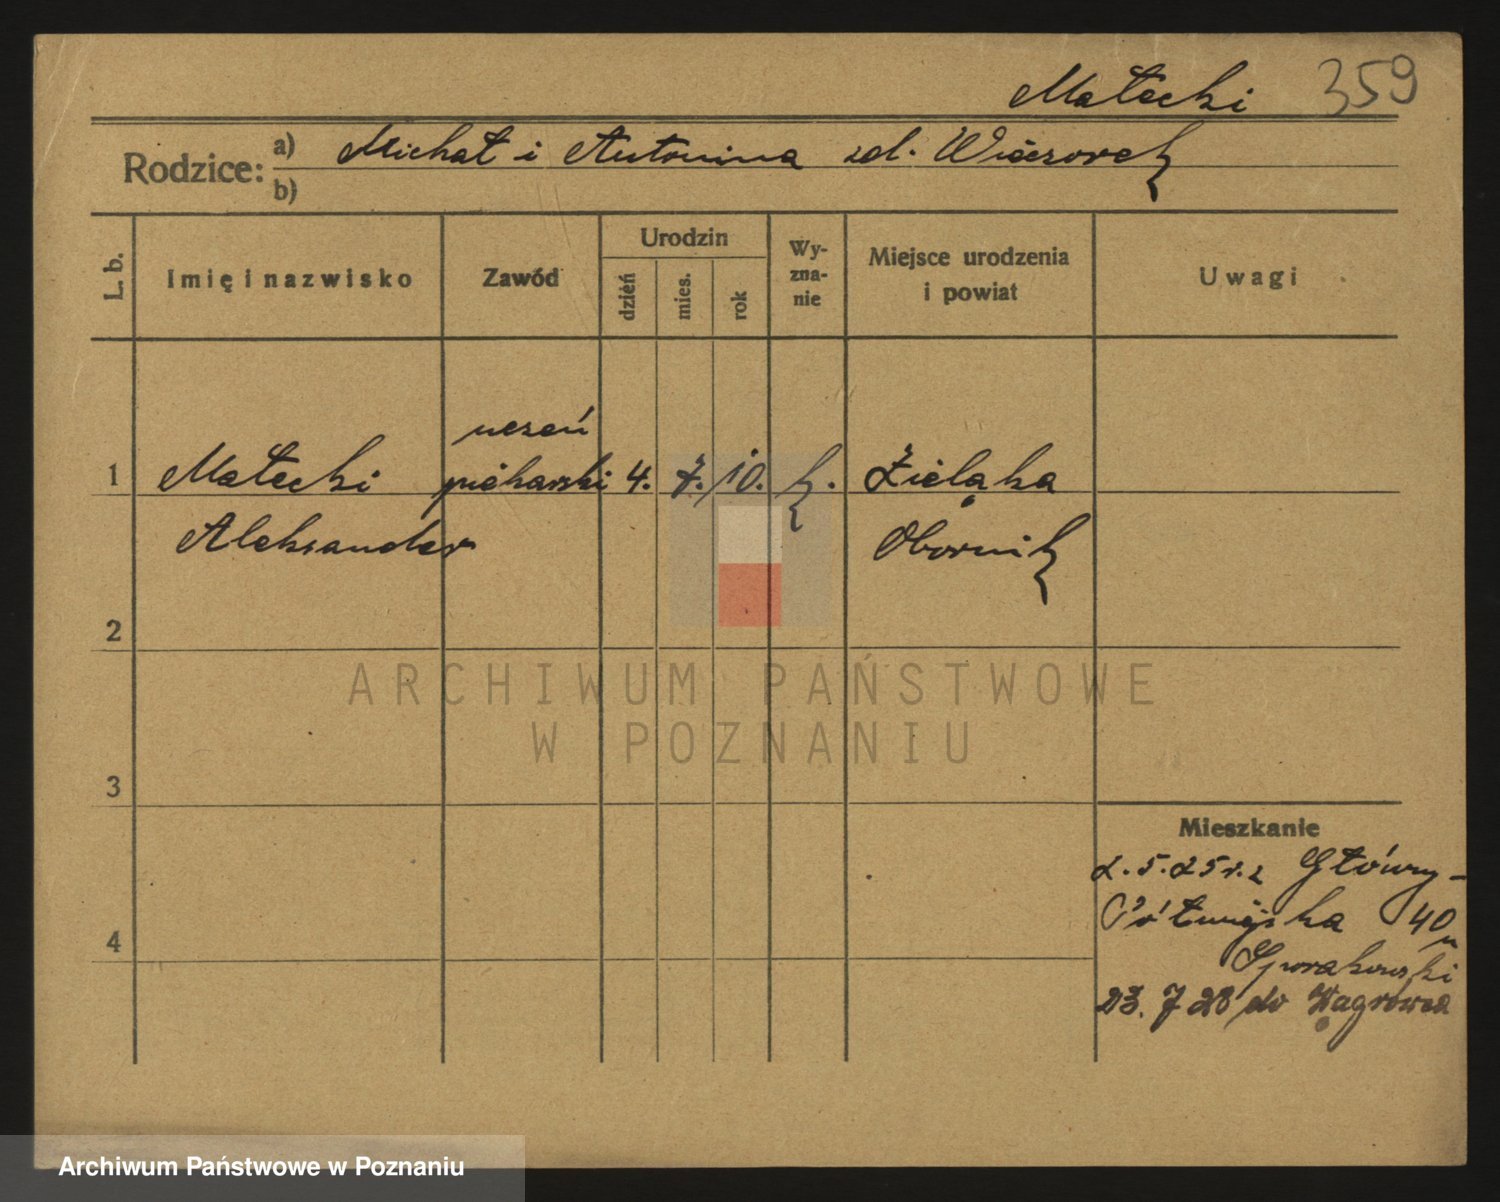 Małecki 359
Rodzice: a) Michał i Antonina zd. Wieczorek
b)
L. b.
Imię i nazwisko
Zawód
Urodzin
dzień
mies.
rok
Wy-
zna-
nie
Miejsce urodzenia
i powiat
Uwagi
uczeń
1 Małecki piekarski 4. 7. 10. k. Zielątka
Aleksander Obornik
2
3
4
ARCHIWUM PAŃSTWOWE
W POZNANIU
Mieszkanie
2.5.25 r. z Główny-
Półwiejska 40
u
23.7 28 do Wągrowca
Archiwum Państwowe w Poznaniu